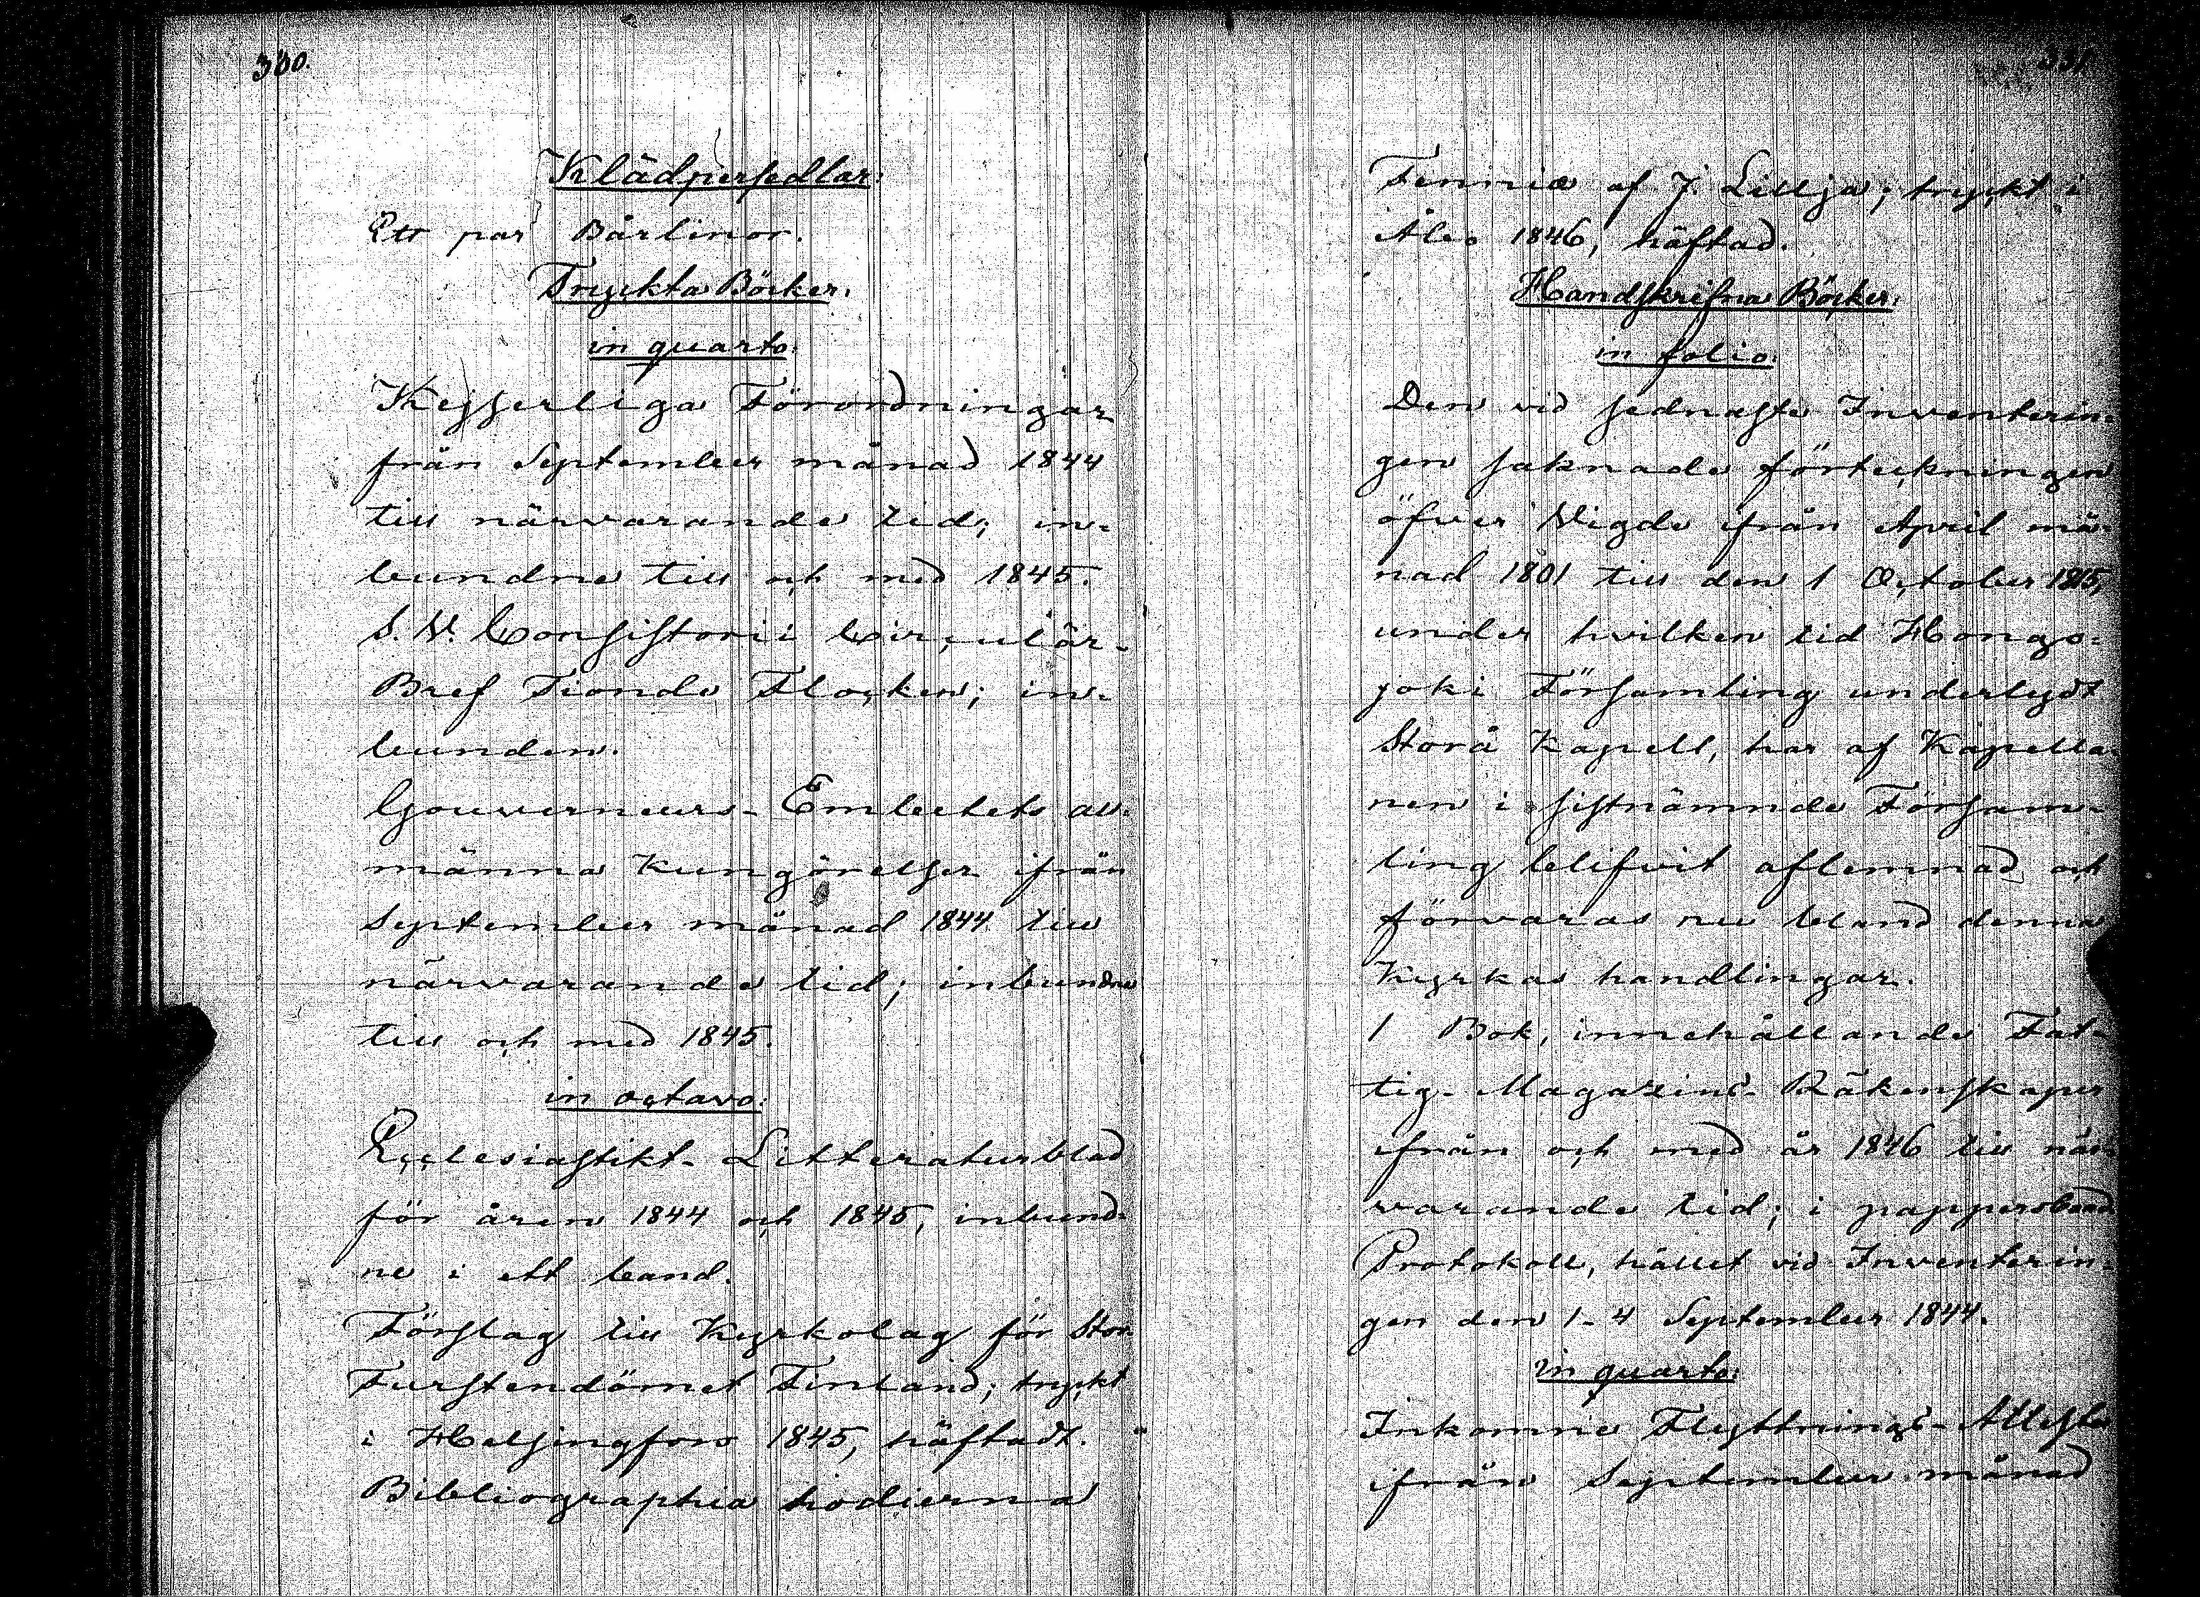 300.
Klädpersedlar:
Ett par Bårlinor.
Tryckta Böcker.
in quarto:
Kejserliga Förordningar
från September månad 1844
till närvarande tid; in-
bundne till och med 1845.
S. V. Consistorii Circulär-
Bref Tionde Flocken; in-
bunden.
Gouverneurs-Embetets all-
männa Kungörelser ifrån
September månad 1844 till
närvarande tid; inbundne
till och med 1845.
in octavo:
Ecclesiastikt-Litteraturblad
för åren 1844 och 1845, inbund-
ne i ett band.
Förslag till Kyrkolag för Stor-
Furstendömet Finland; tryckt
i Helsingfors 1845, häftadt.
Bibliographia hodierna
Fenniæ af J. Lillja; tryckt i
Åbo 1846, häftad.
Handskrifna Böcker:
in folio:
Den vid sednaste Inventerin-
gen saknade förteckningen
öfver Vigde ifrån April må-
nad 1801 till den 1 October 1815,
under hvilken tid Hongo-
joki Församling underlydt
Storå Kapell, har af Kapella-
nen i sistnämnde Församm-
ling blifvit aflemnad och
förvaras nu bland denna
Kyrkas handlingar.
1 Bok, innehållande Fat-
tig-Magazins-Räkenskaper
ifrån och med år 1846 till när-
varande tid; i pappersband
Protokoll, hållet vid Inventerin-
gen den 1-4 September 1844.
in quarto:
Inkomne Flyttnings-Attester
ifrån September månad